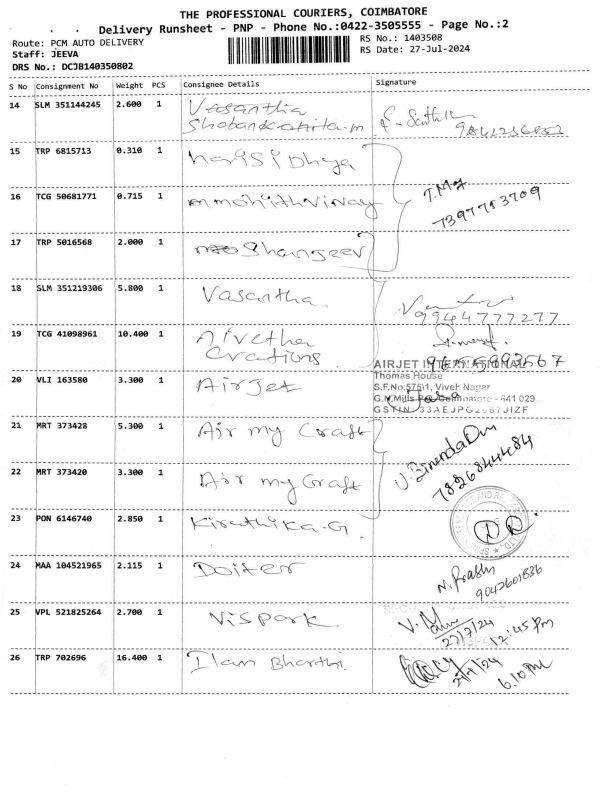 THE PROFESSIONAL COURIERS, COIMBATORE
Delivery Runsheet - PNP - Phone No.:0422-3505555 - Page No.:2
Route: PCM AUTO DELIVERY
RS No.: 1403508
Staff: JEEVA
RS Date: 27-Jul-2024
DRS No.: DCJB140350802
S No Consignment No Weight PCS Consignee Details Signature
14 SLM 351144245 2.600 1 Vasantha
15 TRP 6815713 0.310 1 harisidhya
16 TCG 50681771 0.715 1 mmohithvinay
7397713709
17 TRP 5016568 2.000 1 Shanjeev
18 SLM 351219306 5.800 1 Vasantha
9944777277
19 TCG 41098961 10.400 1 Nivetha
Crations
9655993567
AIRJET INTERNATIONAL
20 VLI 163580 3.300 1 AirJet
Thomas House
S.F.No.575\1, Vivek Nagar
G.N.Mills Coimbatore - 641 029.
21 MRT 373428 5.300 1 Air my Craft
7826844484
22 MRT 373420 3.300 1 Air my Craft
23 PON 6146740 2.850 1 Kiruthika.G
24 MAA 104521965 2.115 1 Doiter
9042601826
25 VPL 521825264 2.700 1 Vispark
27/7/24
12:45 Pm
26 TRP 702696 16.400 1 Ilam Bharthi.
6.10 PM